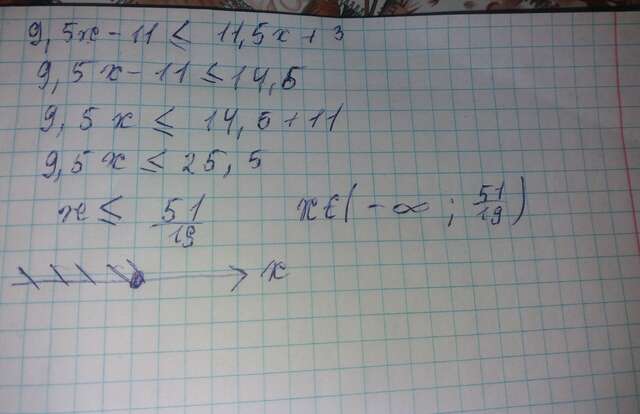 9,5x-11 ≤ 11,5x+3
9,5x-11 ≤ 14,5
9,5x ≤ 14,5+11
9,5x ≤ 25,5
x ≤ 51/19 x∈(-∞; 51/19)
x